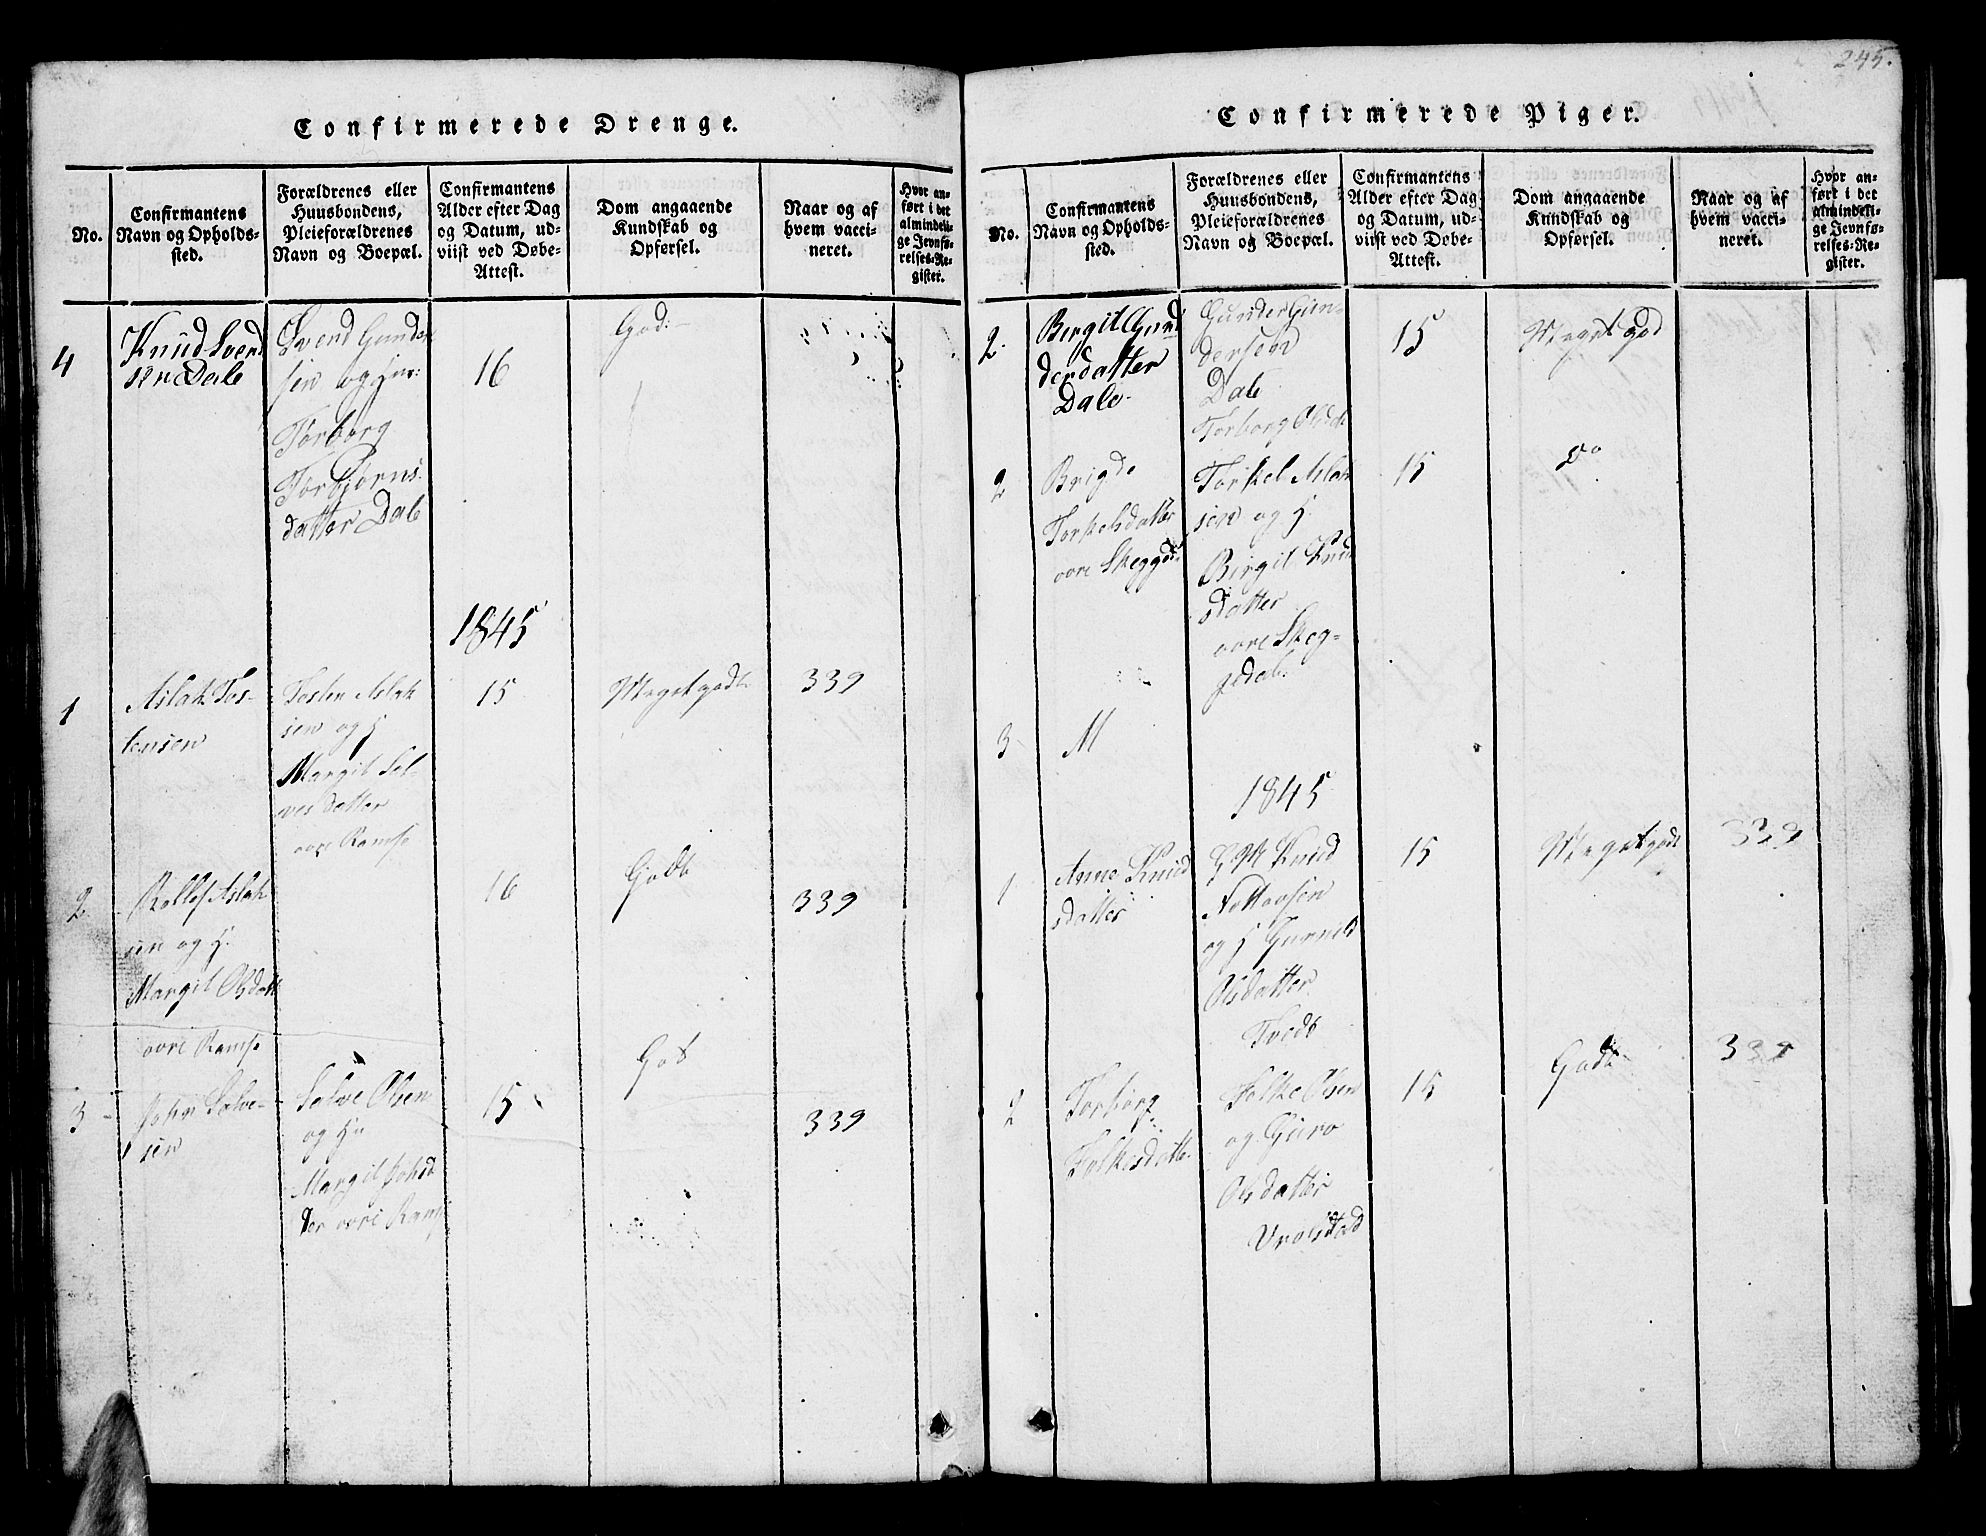 245.
Confirmerede Drenge.
No.
Confirmantens
Navn og Opholds-
sted.
Forældrenes eller
Huusbondens,
Pleieforældrenes
Navn og Boepæl.
Confirmantens
Alder efter Dag
og Datum, ud-
viist ved Døbe-
Attest.
Dom angaaende
Kundskab og
Opførsel.
Naar og af
hvem vacci-
neret.
Hvor an-
ført i det
almindeli-
ge Jevnfø-
relses-Re-
gister.
4
Knud Svend
sen Dale
Svend Gunder
sen og
Torborg
Torbjørns
datter Dale
16
God
1845
1
Aslak Tos-
tensen
Tosten Aslak
sen og H
Margit Sal-
ves datter
øvre Ramse
15
Meget godt
339
2
Rollef Aslak
sen og H.
Margit Olsdatt
øvre Ramse
16
Godt
339
3
John Salve-
sen
Salve Olsen
og Hu
Margit Johsd
ter øvre Rams
15
Got
339
Confirmerede Piger.
No.
Confirmantens
Navn og Opholds-
sted.
Forældrenes eller
Huusbondens,
Pleieforældrenes
Navn og Boepæl.
Confirmantens
Alder efter Dag
og Datum, ud-
viist ved Døbe-
Attest.
Dom angaaende
Kundskab og
Opførsel.
Naar og af
hvem vacci-
neret.
Hvor an-
ført i det
almindeli-
ge Jevnfø-
relses-Re-
gister.
2.
Birgit Gun
derdatter
Dale
Gunder Gun-
dersen
Dale
Torborg Olsdt
15
Meget god
2
Brigde
Torkelsdatter
øvre Skeggd
Torkel Aslak
sen og H.
Birgit Knud
sdatter
øvre Skeg-
gedal
15
Do
3
M
1845
1
Anne Knud
sdatter
G M Knud
og H Gunnild
Olsdatter
Tvedt
15
Meget godt
339
2
Torborg
Folkesdatte
Folke Olsen
og Guro
Olsdatter
Vrolstad
15
Godt
339